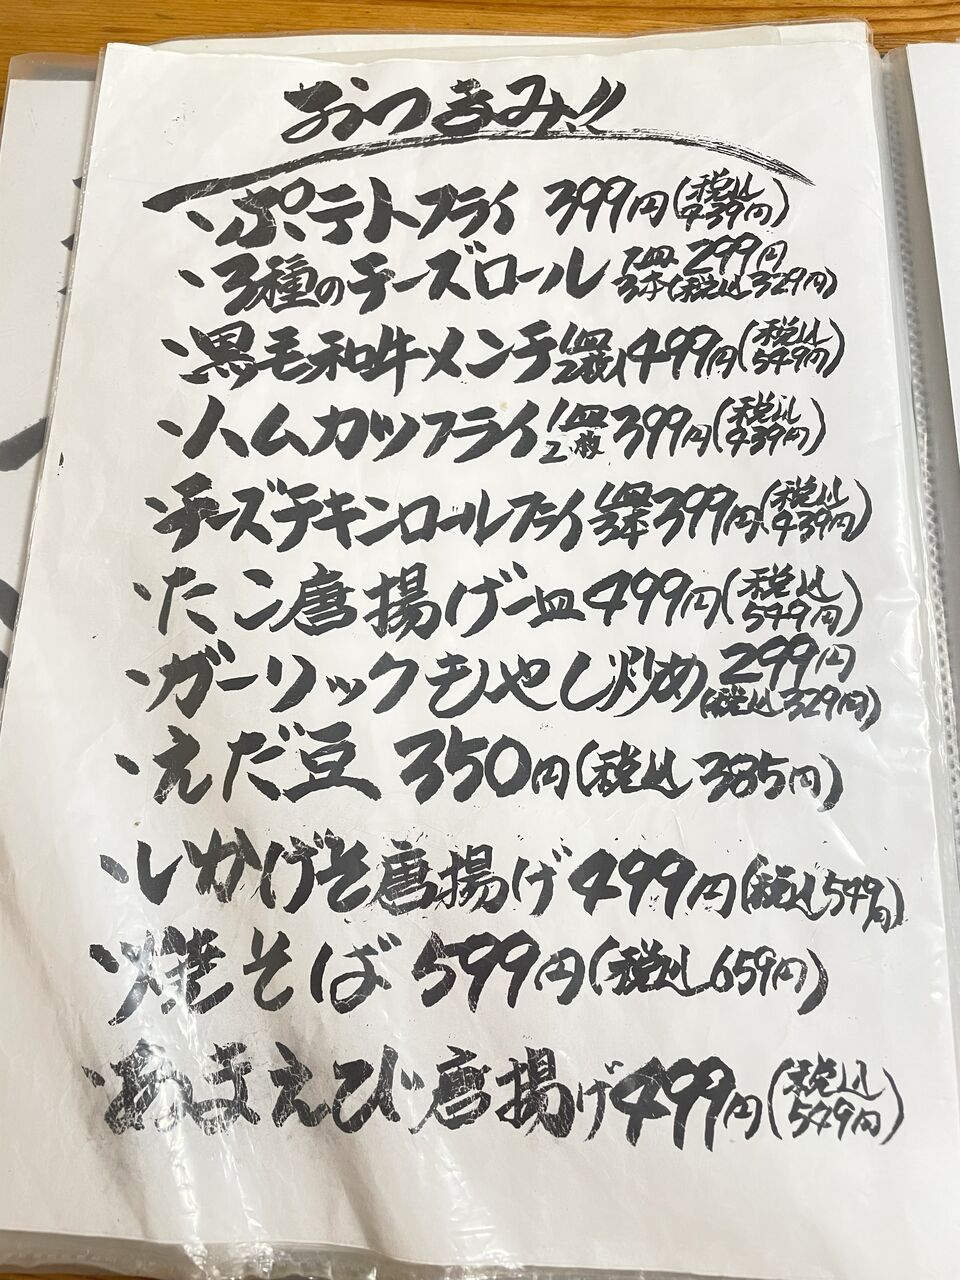 おつまみ!!
・ポテトフライ 399円(税込439円)
・3種のチーズロール 1皿3本 299円(税込329円)
・黒毛和牛メンチ 1皿2枚 499円(税込549円)
・ハムカツフライ 1皿2枚 399円(税込439円)
・チーズチキンロールフライ 1皿3本 399円(税込439円)
・たこ唐揚げ一皿 499円(税込549円)
・ガーリックもやし炒め 299円(税込329円)
・えだ豆 350円(税込385円)
・いかげそ唐揚げ 499円(税込549円)
・焼そば 599円(税込659円)
・あまえび唐揚げ 499円(税込549円)